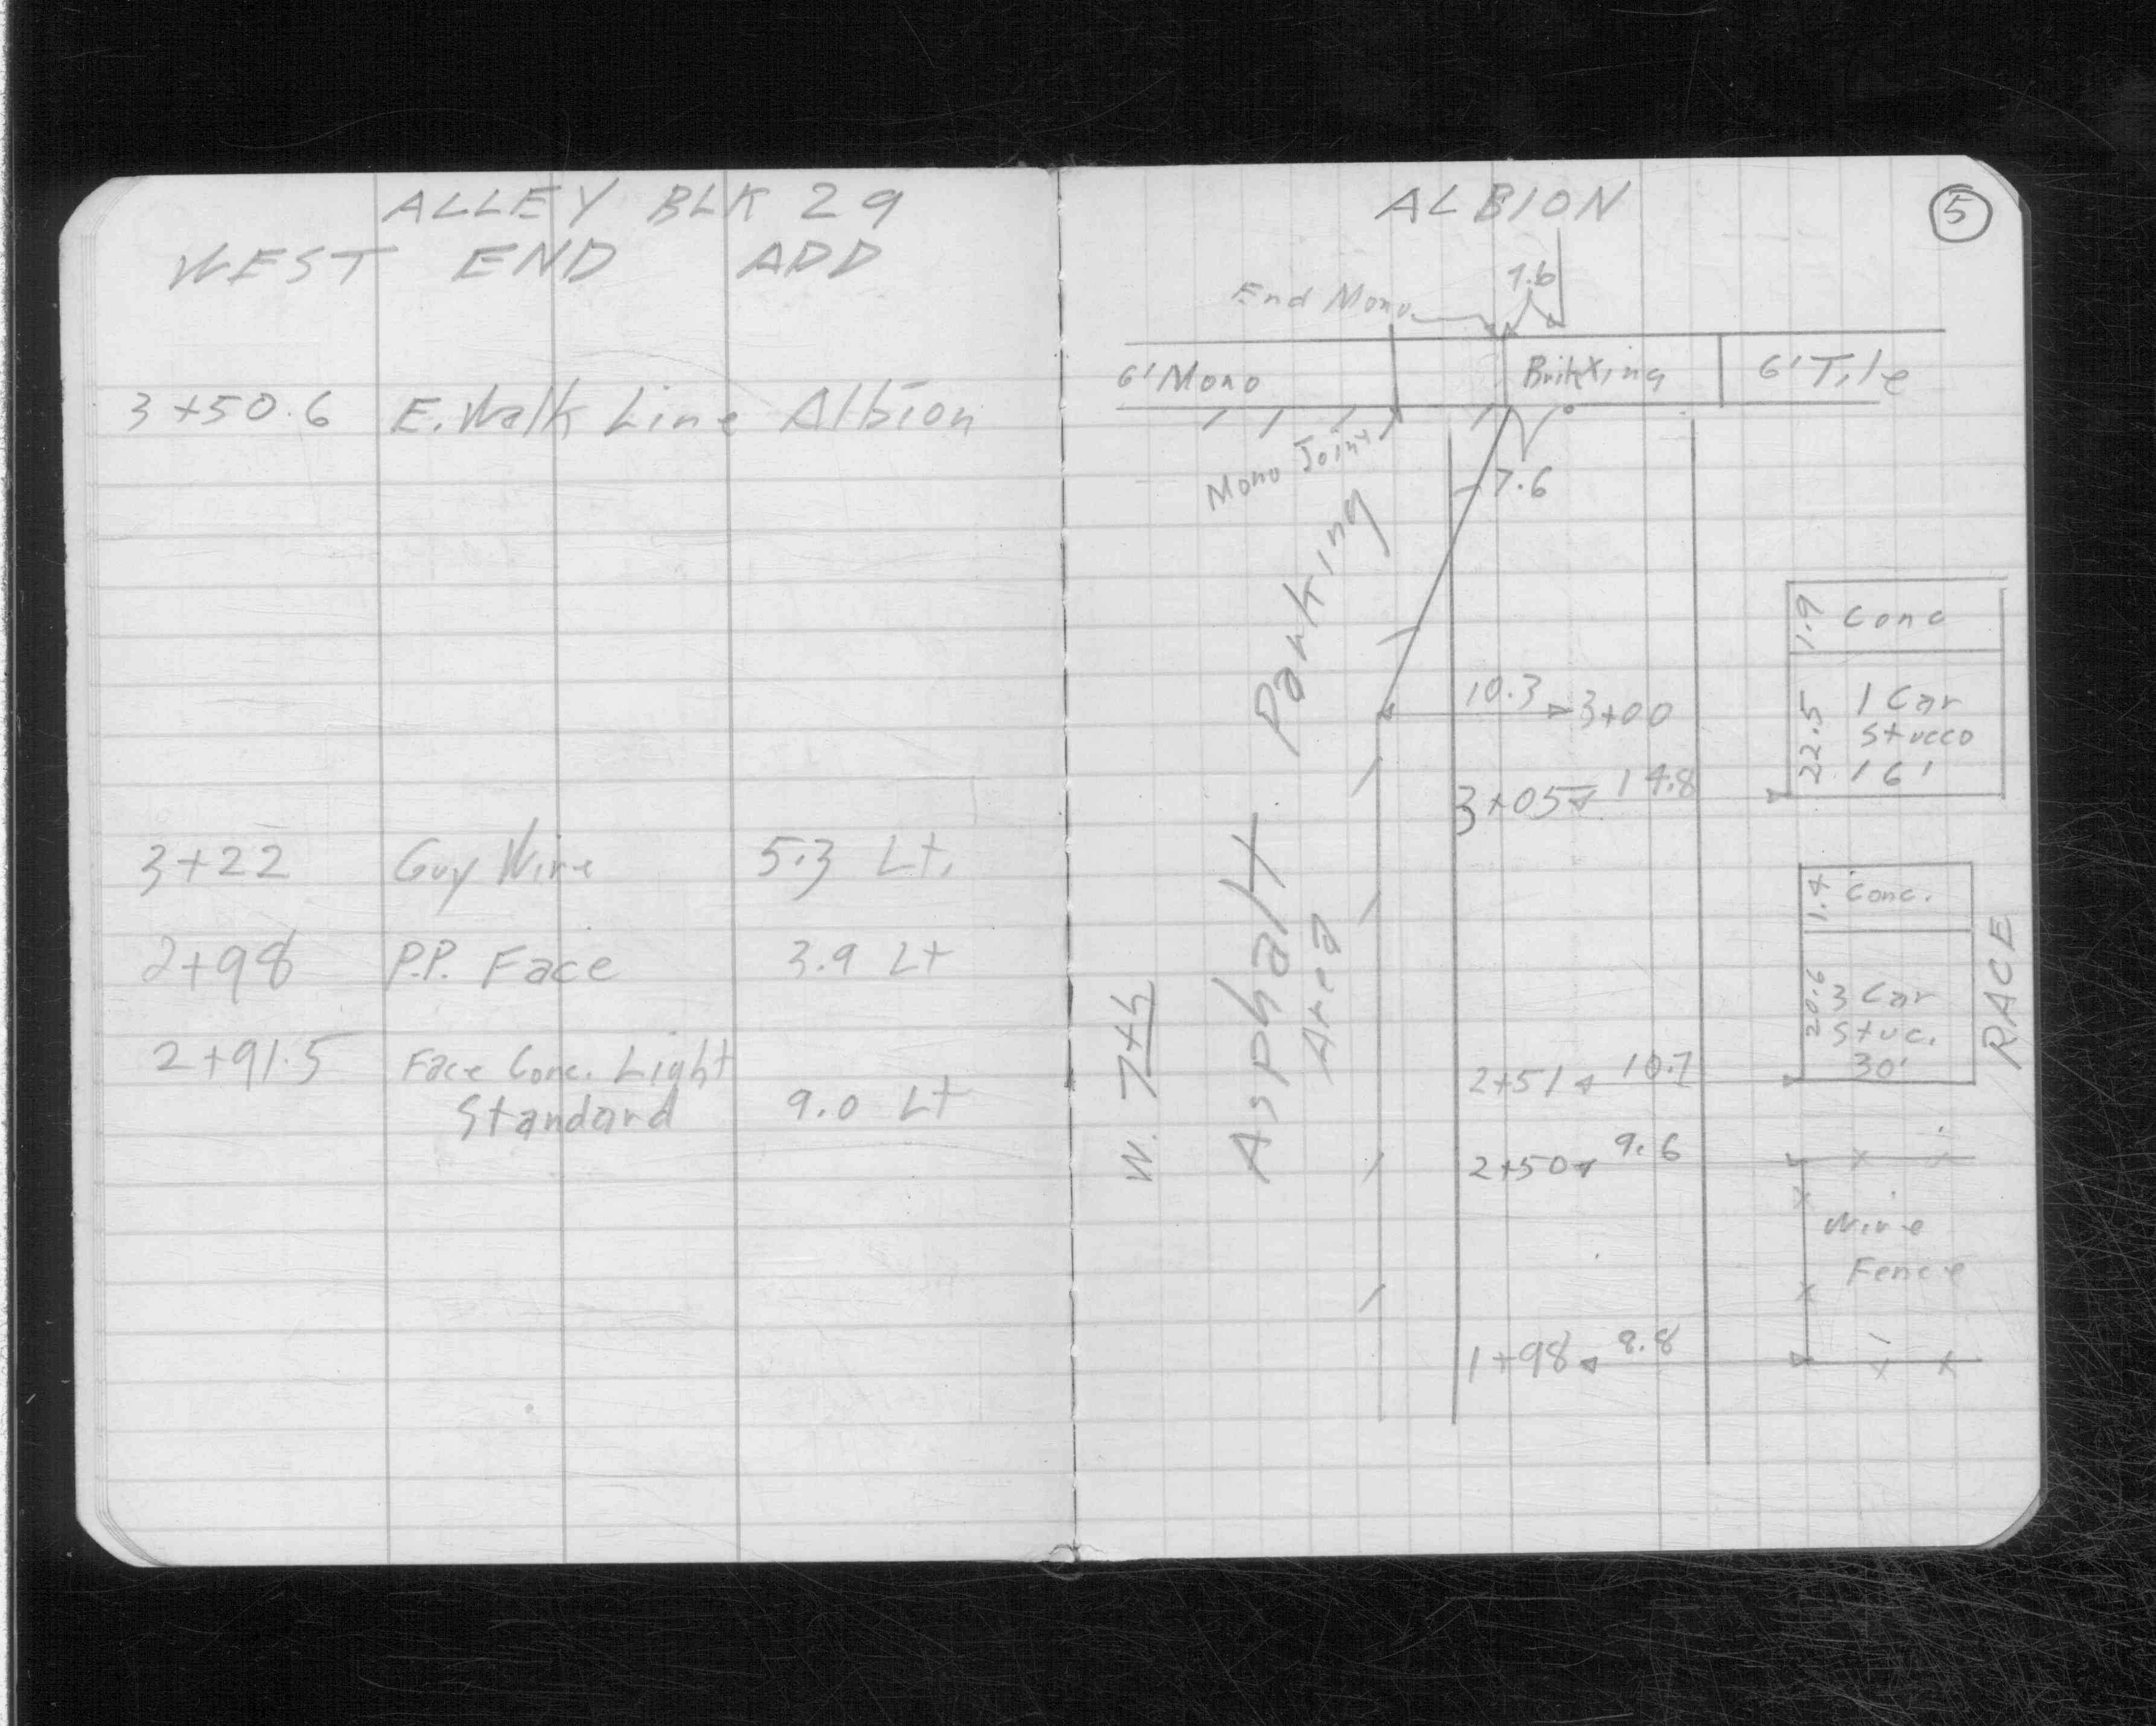 ALLEY BLK 29
WEST END ADD
3+50.6 E. Walk Line Albion
3+22 Guy Wire 5.3 Lt.
2+98 P.P. Face 3.9 Lt
2+91.5 Face Conc. Light
Standard 9.0 Lt
ALBION
5
1.6
End Mono
6' Mono
6' Tile
Mono Joint
7.6
Parking
Asphalt
Area
W. 7th
10.3 3+00
3+05 14.8
1.9 Conc
22.5 1 Car
Stucco
16'
1.4 Conc.
20.6 3 Car
Stuc.
30'
RACE
2+51 10.7
2+50 9.6
Wire
Fence
1+98 8.8